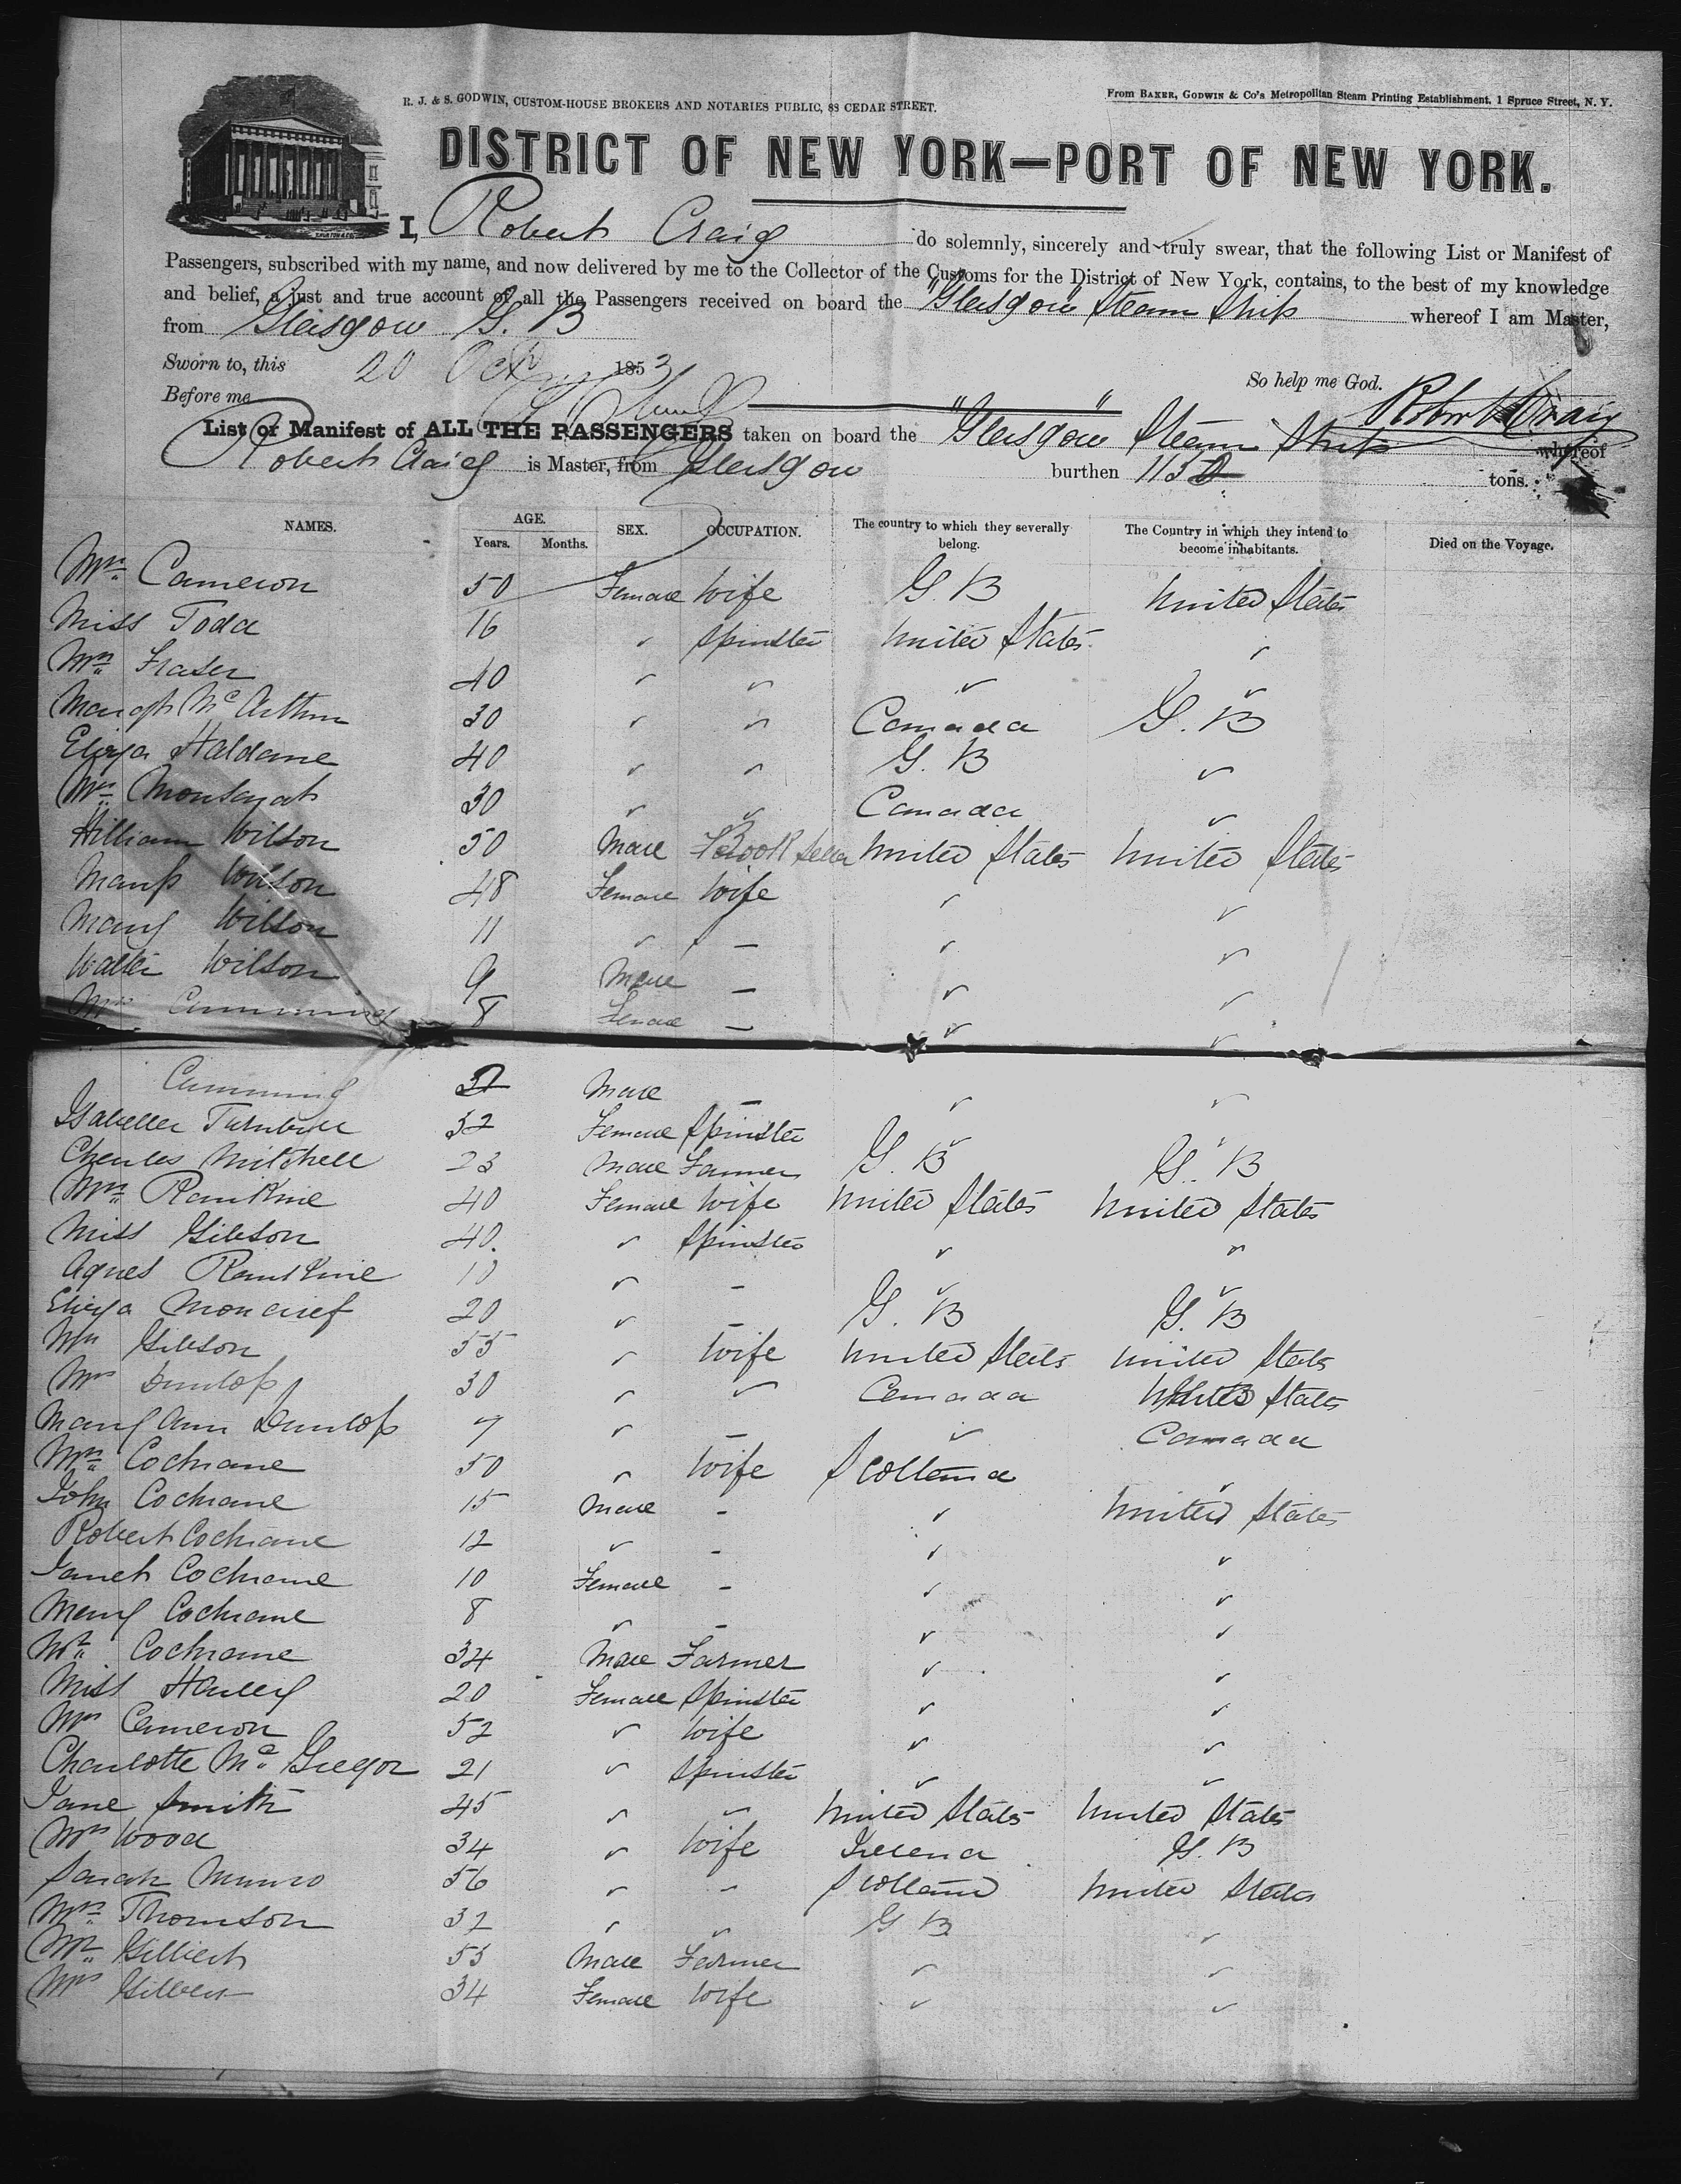 R. J. & S. GODWIN, CUSTOM-HOUSE BROKERS AND NOTARIES PUBLIC, 88 CEDAR STREET.
From BAKER, GODWIN & Co's Metropolitan Steam Printing Establishment, 1 Spruce Street, N. Y.
DISTRICT OF NEW YORK—PORT OF NEW YORK.
I, Robert Craig do solemnly, sincerely and truly swear, that the following List or Manifest of
Passengers, subscribed with my name, and now delivered by me to the Collector of the Customs for the District of New York, contains, to the best of my knowledge
and belief, a just and true account of all the Passengers received on board the "Glasgow" Steam Ship whereof I am Master,
from Glasgow G. B
Sworn to, this 20 Oct 1853
So help me God. Robert Craig
Before me
List or Manifest of ALL THE PASSENGERS taken on board the "Glasgow" Steam Ship whereof
Robert Craig is Master, from Glasgow burthen 1150 tons.
NAMES. AGE. SEX. OCCUPATION. The country to which they severally belong. The Country in which they intend to become inhabitants. Died on the Voyage.
Years. Months.
Mrs. Cameron 50 Female Wife G. B United States
Miss Todd 16 " Spinster United States "
Mrs. Fraser 40 " " " "
Margt McArthur 30 " " Canada G. B
Eliza Haldane 40 " " G. B "
Mrs. 30 " " Canada "
William Wilson 50 Male Book Seller United States United States
Wilson 48 Female Wife " "
Mary Wilson 11 " — " "
Walter Wilson 9 Male — " "
Cumming 8 Female — " "
Cumming Male — " "
Isabella Turnbull 32 Female Spinster " "
Charles Mitchell 23 Male Farmer G. B G. B
Mrs. Rankine 40 Female Wife United States United States
Miss Gibson 40. " Spinster " "
Agnes Rankine 10 " — " "
Eliza Moncrief 20 " — G. B G. B
Mrs Gibson 55 " Wife United States United States
Mrs Dunlop 30 " " Canada States
Mary Ann Dunlop 7 " — " Canada
Mrs. Cochrane 50 " Wife Scotland "
John Cochrane 15 Male - " United States
Robert Cochrane 12 " - " "
Janet Cochrane 10 Female - " "
Mary Cochrane 8 " - " "
Mr. Cochrane 34 Male Farmer " "
Miss 20 Female Spinster " "
Mrs Cameron 52 " Wife " "
Charlotte McGregor 21 " Spinster " "
Jane Smith 45 " " United States United States
Mrs Wood 34 " Wife Ireland G. B
Sarah Munro 56 " " Scotland United States
Mrs. Thomson 32 " " G B "
Mr. Gilbert 55 Male Farmer " "
Mrs Gilbert 34 Female Wife " "